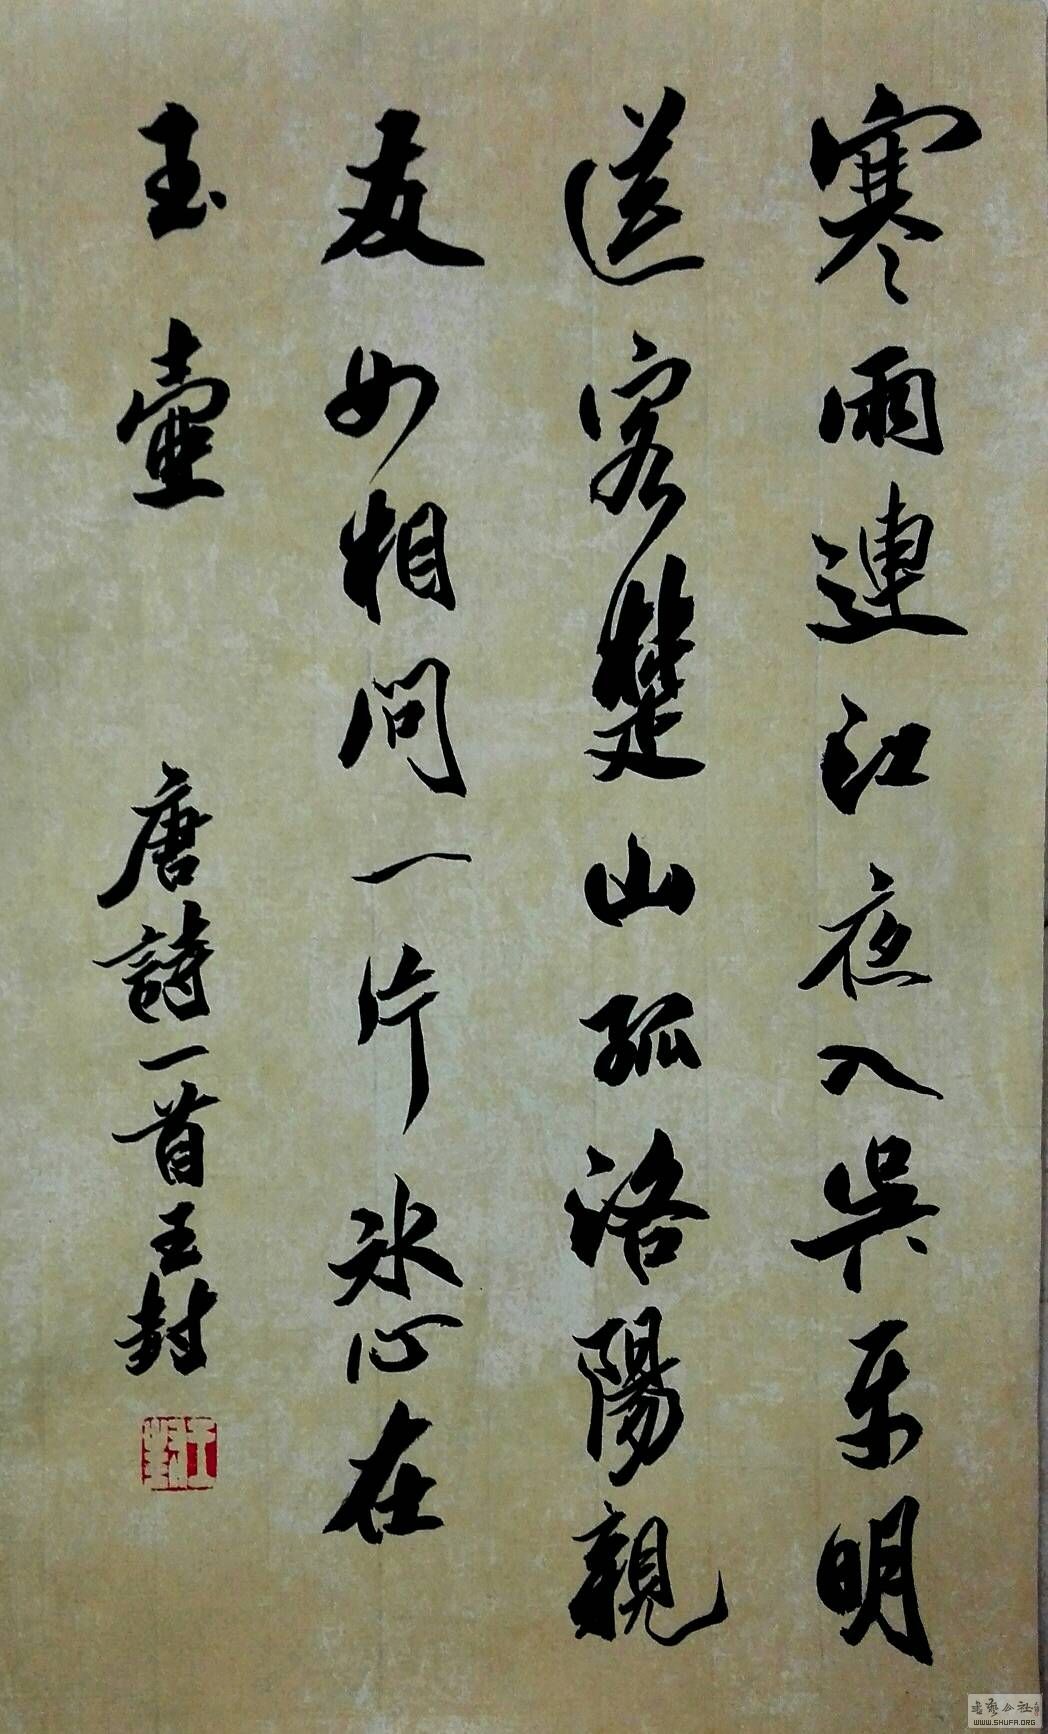 寒雨連江夜入吳平明
送客楚山孤洛陽親
友如相問一片冰心在
玉壺
唐詩一首王封
王封
書藝公社
WWW.SHUFA.ORG